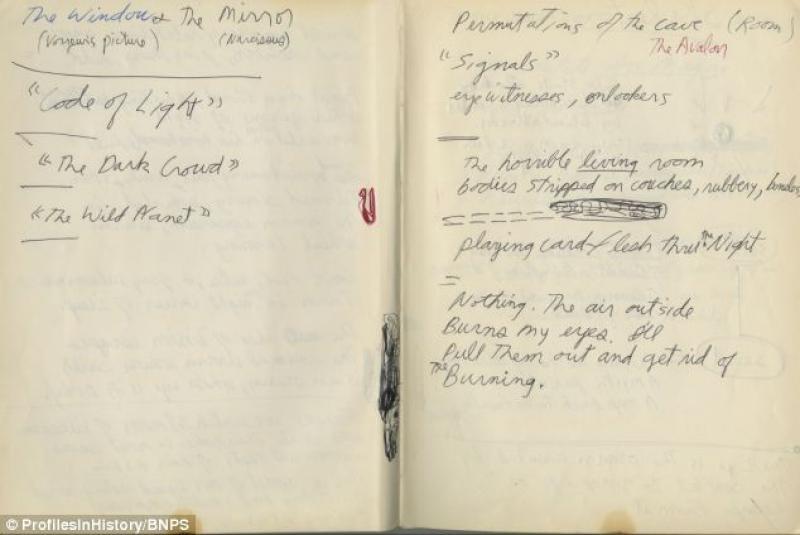 The Window & The Mirror
(Voyeur's picture) (Narcissus)
"Code of Light"
"The Dark Crowd"
"The Wild Planet"
Permutations of the cave (Room)
The Avalon
"Signals"
eyewitnesses, onlookers
The horrible living room
bodies stripped on couches, rubbery,
playing card flesh thru the Night
Nothing. The air outside
Burns my eyes. I'll
Pull Them out and get rid of
The Burning.
© ProfilesInHistory/BNPS